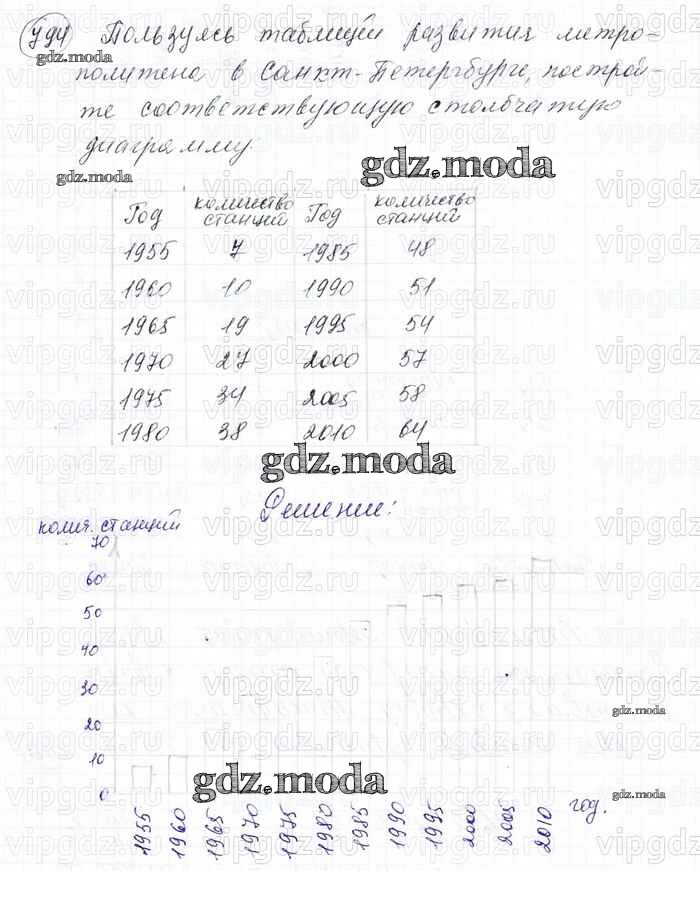 794 Пользуясь таблицей развития метро-
gdz.moda
политена в Санкт-Петербурге, построй-
те соответствующую столбчатую
диаграмму.
gdz.moda
gdz.moda
Год количество станций Год количество станций
1955 7 1985 48
1960 10 1990 51
1965 19 1995 54
1970 27 2000 57
1975 34 2005 58
1980 38 2010 64
gdz.moda
Решение:
колич. станций
70
60
50
40
30
gdz.moda
20
10
gdz.moda
0
gdz.moda
1955 1960 1965 1970 1975 1980 1985 1990 1995 2000 2005 2010 год.
vipgdz.ru